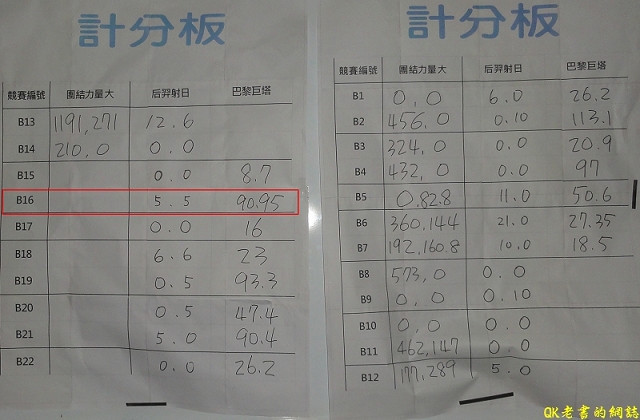 計分板
競賽編號 團結力量大 后羿射日 巴黎巨塔
B13 1191,271 12.6
B14 210,0 0.0
B15 0.0 8.7
B16 5.5 90.95
B17 0.0 16
B18 6.6 23
B19 0.5 93.3
B20 0.5 47.4
B21 5.0 90.4
B22 0.0 26.2
計分板
競賽編號 團結力量大 后羿射日 巴黎巨塔
B1 0,0 6.0 26.2
B2 456,0 0.10 113.1
B3 324,0 0.0 20.9
B4 432,0 0.0 97
B5 0,82.8 11.0 50.6
B6 360,144 21.0 27.35
B7 192,160.8 10.0 18.5
B8 573,0 0.0
B9 0,0 0.10
B10 0,0 0.0
B11 462,147 0.0
B12 177,289 5.0
QK老書的網誌